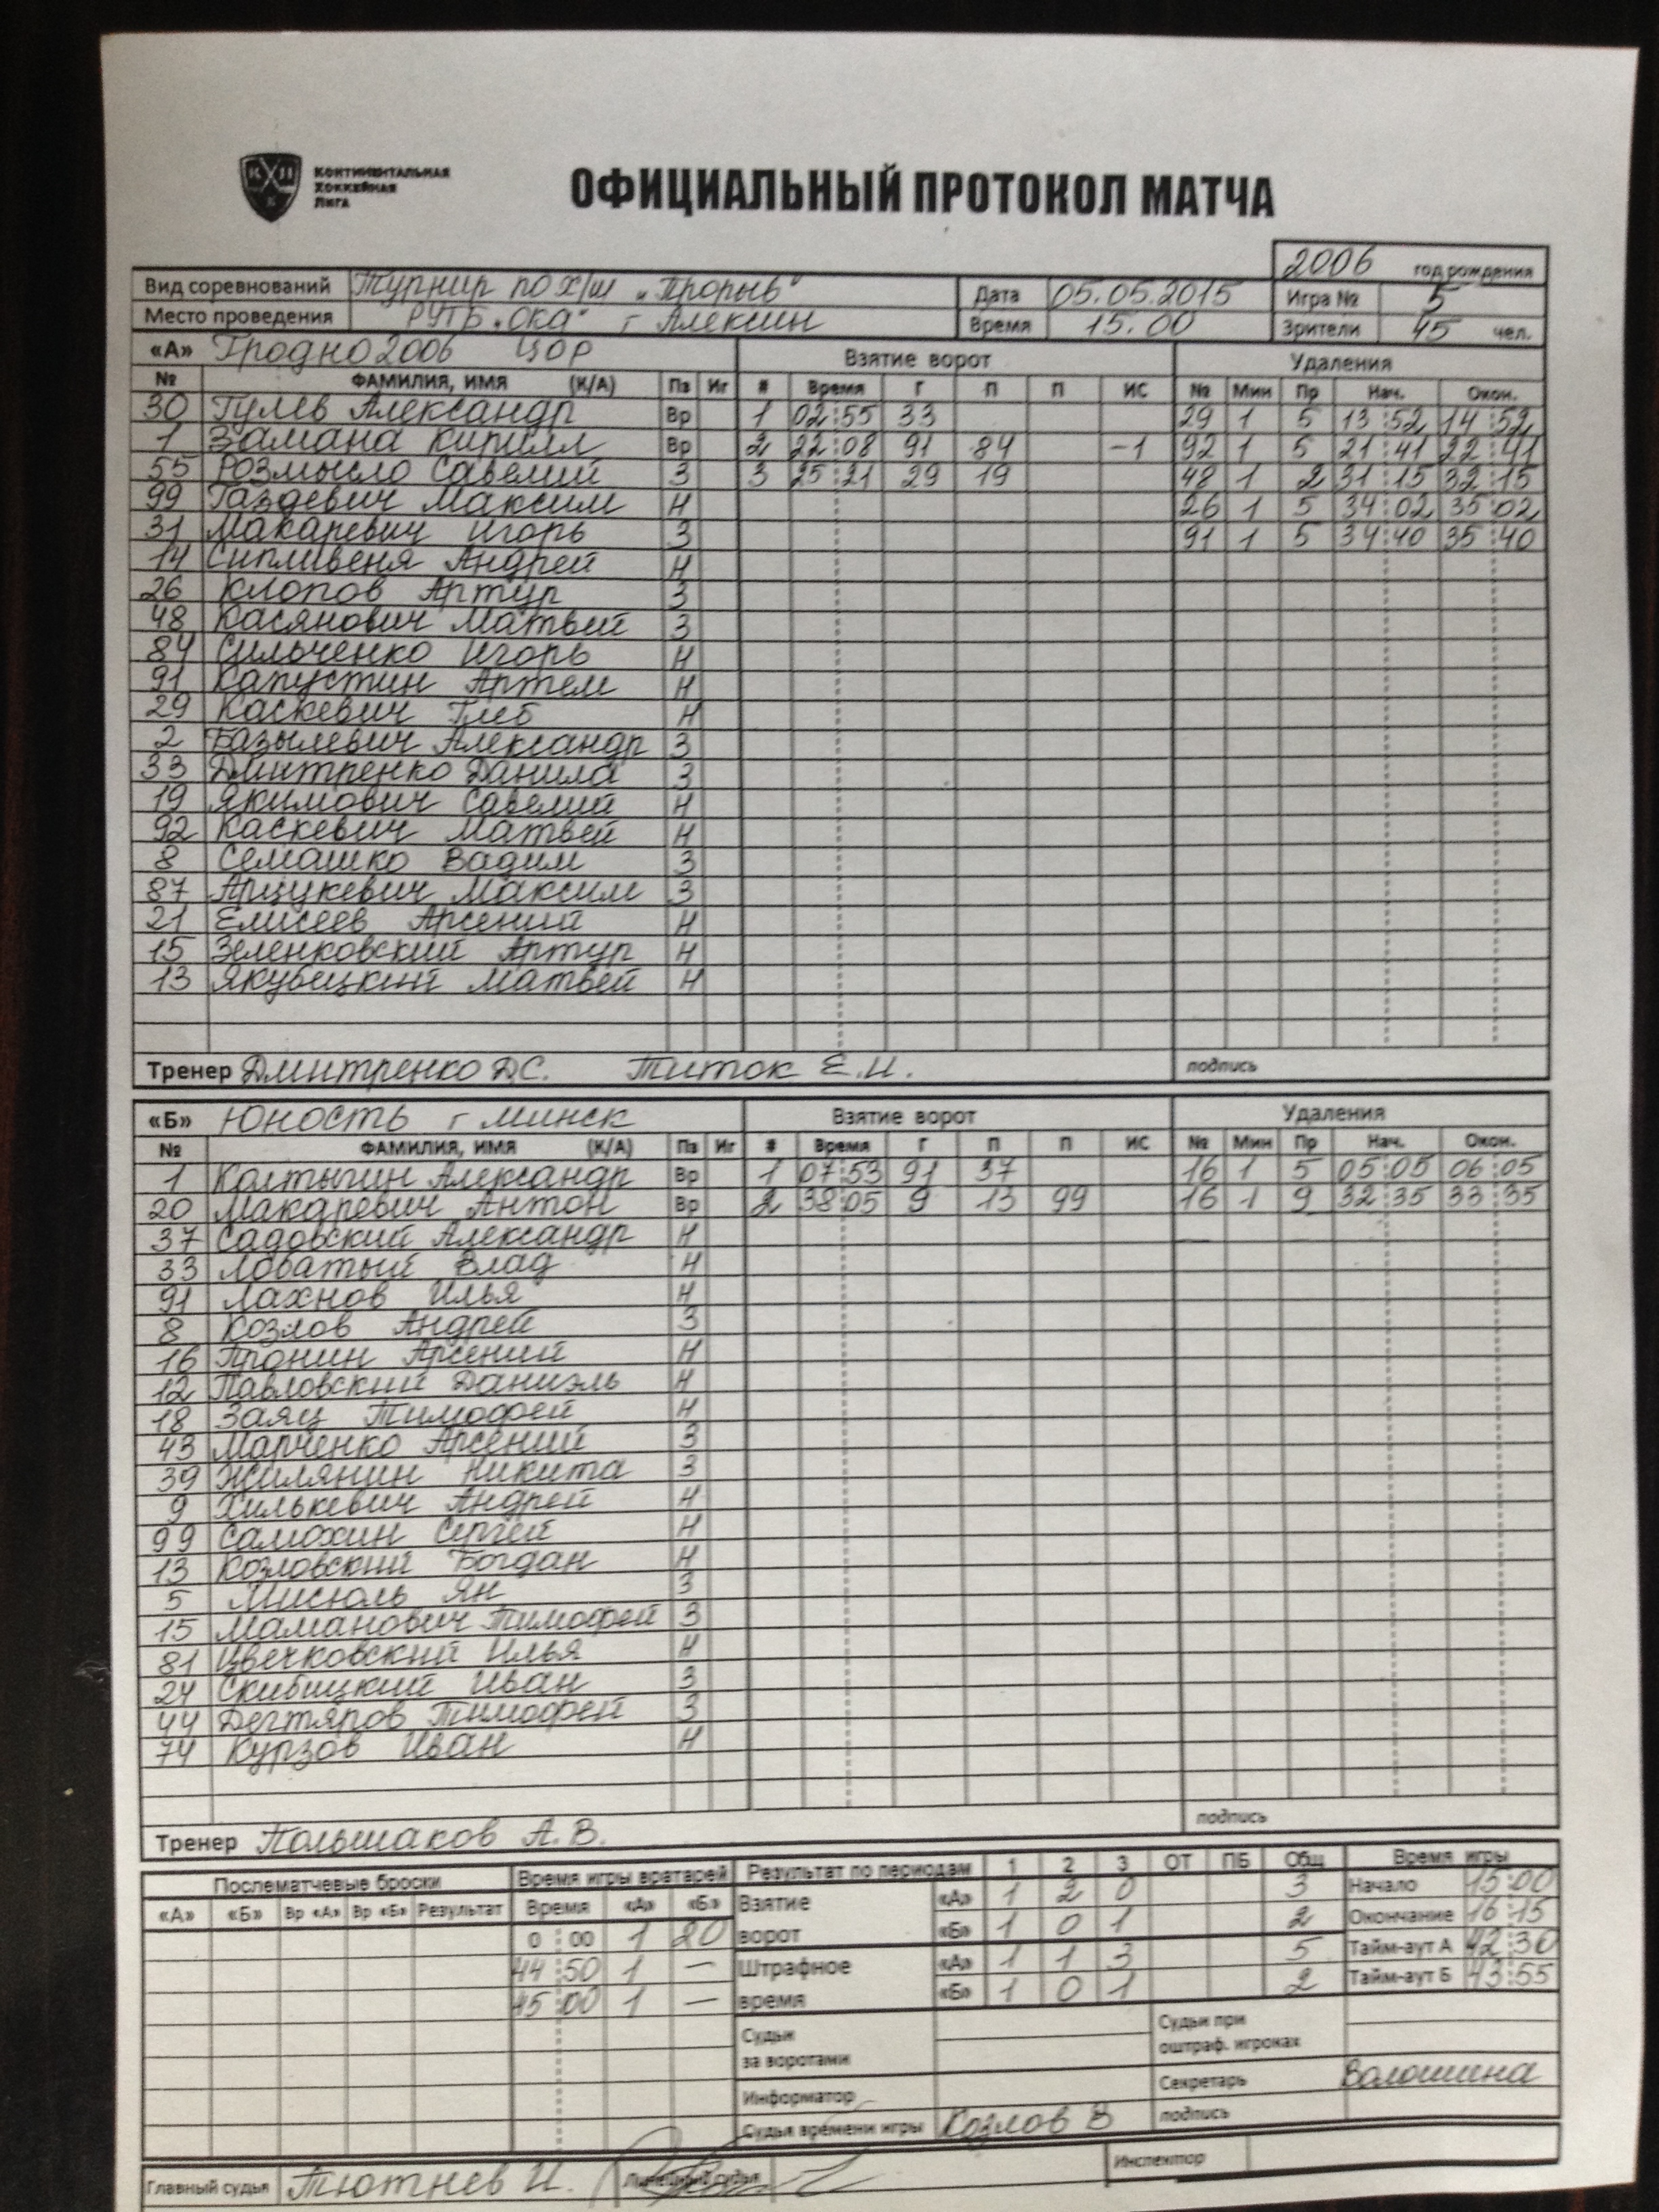 КОНТИНЕНТАЛЬНАЯ
ХОККЕЙНАЯ
ЛИГА
ОФИЦИАЛЬНЫЙ ПРОТОКОЛ МАТЧА
2006 год рождения
Вид соревнований Турнир по х/ш "Прорыв" Дата 05.05.2015 Игра № 5
Место проведения РУТБ "Ока" г Алексин Время 15.00 Зрители 45 чел.
«А» Гродно 2006 ЦОР Взятие ворот Удаления
№ ФАМИЛИЯ, ИМЯ (К/А) Пз Иг # Время Г П П ИС № Мин Пр Нач. Окон.
30 Гулев Александр Вр 1 02 55 33 29 1 5 13 52 14 52
1 Замана Кирилл Вр 2 22 08 91 84 -1 92 1 5 21 41 22 41
55 Розмысло Савелий З 3 25 21 29 19 48 1 2 31 15 32 15
99 Газдевич Максим Н 26 1 5 34 02 35 02
31 Макаревич Игорь З 91 1 5 34 40 35 40
14 Сипливеня Андрей Н
26 Клопов Артур З
48 Касянович Матвей З
84 Сильченко Игорь Н
91 Капустин Артем Н
29 Каскевич Глеб Н
2 Базылевич Александр З
33 Дмитренко Данила З
19 Якимович Савелий Н
92 Каскевич Матвей Н
8 Семашко Вадим З
87 Арцукевич Максим З
21 Елисеев Арсений Н
15 Зеленковский Артур Н
13 Якубицкий Матвей Н
Тренер Дмитренко Д.С. Титок Е.И. подпись
«Б» Юность г Минск Взятие ворот Удаления
№ ФАМИЛИЯ, ИМЯ (К/А) Пз Иг # Время Г П П ИС № Мин Пр Нач. Окон.
1 Колтыгин Александр Вр 1 07 53 91 37 16 1 5 05 05 06 05
20 Макаревич Антон Вр 2 38 05 9 13 99 16 1 9 32 35 33 35
37 Садовский Александр Н
33 Ловатый Влад Н
91 Лахнов Илья Н
8 Козлов Андрей З
16 Пронин Арсений Н
12 Павловский Даниэль Н
18 Заяц Тимофей Н
43 Марченко Арсений З
39 Жилянин Никита З
9 Хилькевич Андрей Н
99 Самохин Сергей Н
13 Козловский Богдан Н
5 Мисюль Ян З
15 Маманович Тимофей З
81 Цвечковский Илья Н
24 Скибицкий Иван З
44 Дегтяров Тимофей З
74 Курзов Иван Н
подпись
Тренер Польшаков А.В.
Послематчевые броски Время игры вратарей Результат по периодам 1 2 3 ОТ ПБ Общ Время игры
«А» «Б» Вр «А» Вр «Б» Результат Время «А» «Б» Взятие ворот «А» 1 2 0 3 Начало 15 00
0 00 1 20 «Б» 1 0 1 2 Окончание 16 15
44 50 1 — Штрафное время «А» 1 1 3 5 Тайм-аут А 42 30
45 00 1 — «Б» 1 0 1 2 Тайм-аут Б 43 55
Судьи за воротами Судьи при оштраф. игроках
Информатор Секретарь Волошина
Судья времени игры Козлов В подпись
Главный судья Тютнев И. Линейный судья Инспектор